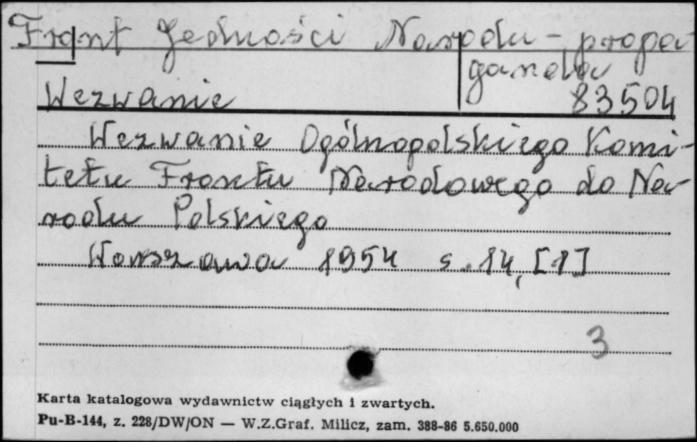 Front Jedności Narodu - propa-
ganda
Wezwanie 83504
Wezwanie Ogólnopolskiego Komi-
tetu Frontu Narodowego do Na-
rodu Polskiego
Warszawa 1954 s. 14, [1]
3
Karta katalogowa wydawnictw ciągłych i zwartych.
Pu-B-144, z. 228/DW/ON — W.Z.Graf. Milicz, zam. 388-86 5.650.000